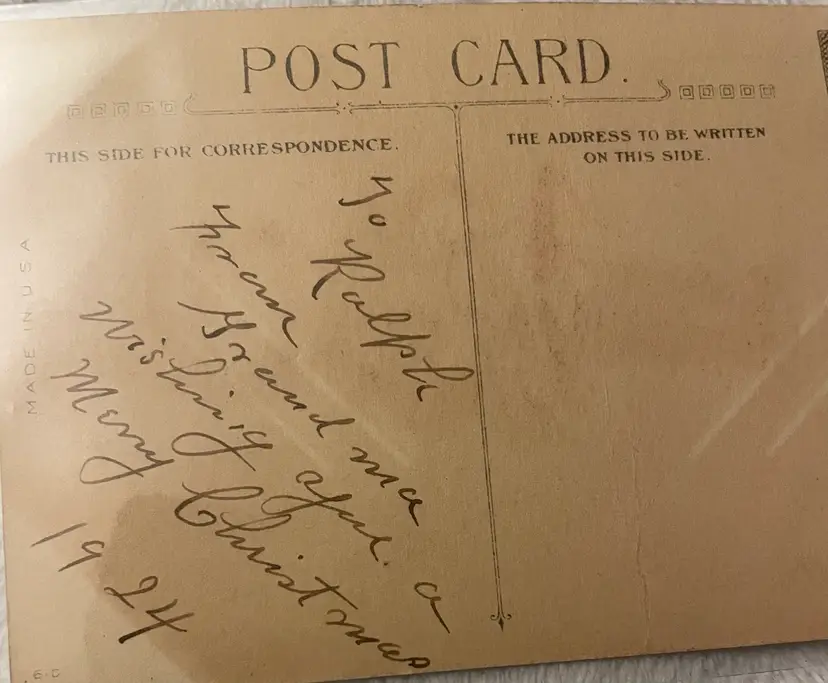 POST CARD.
THIS SIDE FOR CORRESPONDENCE.
THE ADDRESS TO BE WRITTEN
ON THIS SIDE.
To Ralph
from
Grand ma
Wishing you a
Merry Christmas
1924
MADE IN USA